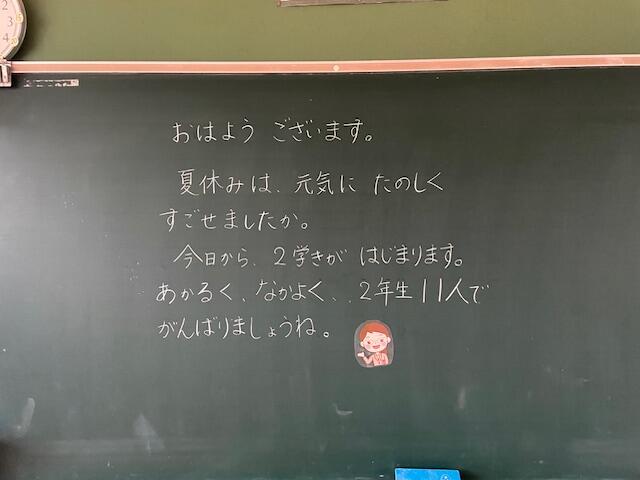 おはよう ございます。
夏休みは、元気に たのしく
すごせましたか。
今日から、2学きが はじまります。
あかるく、なかよく、、2年生11人で
がんばりましょうね。